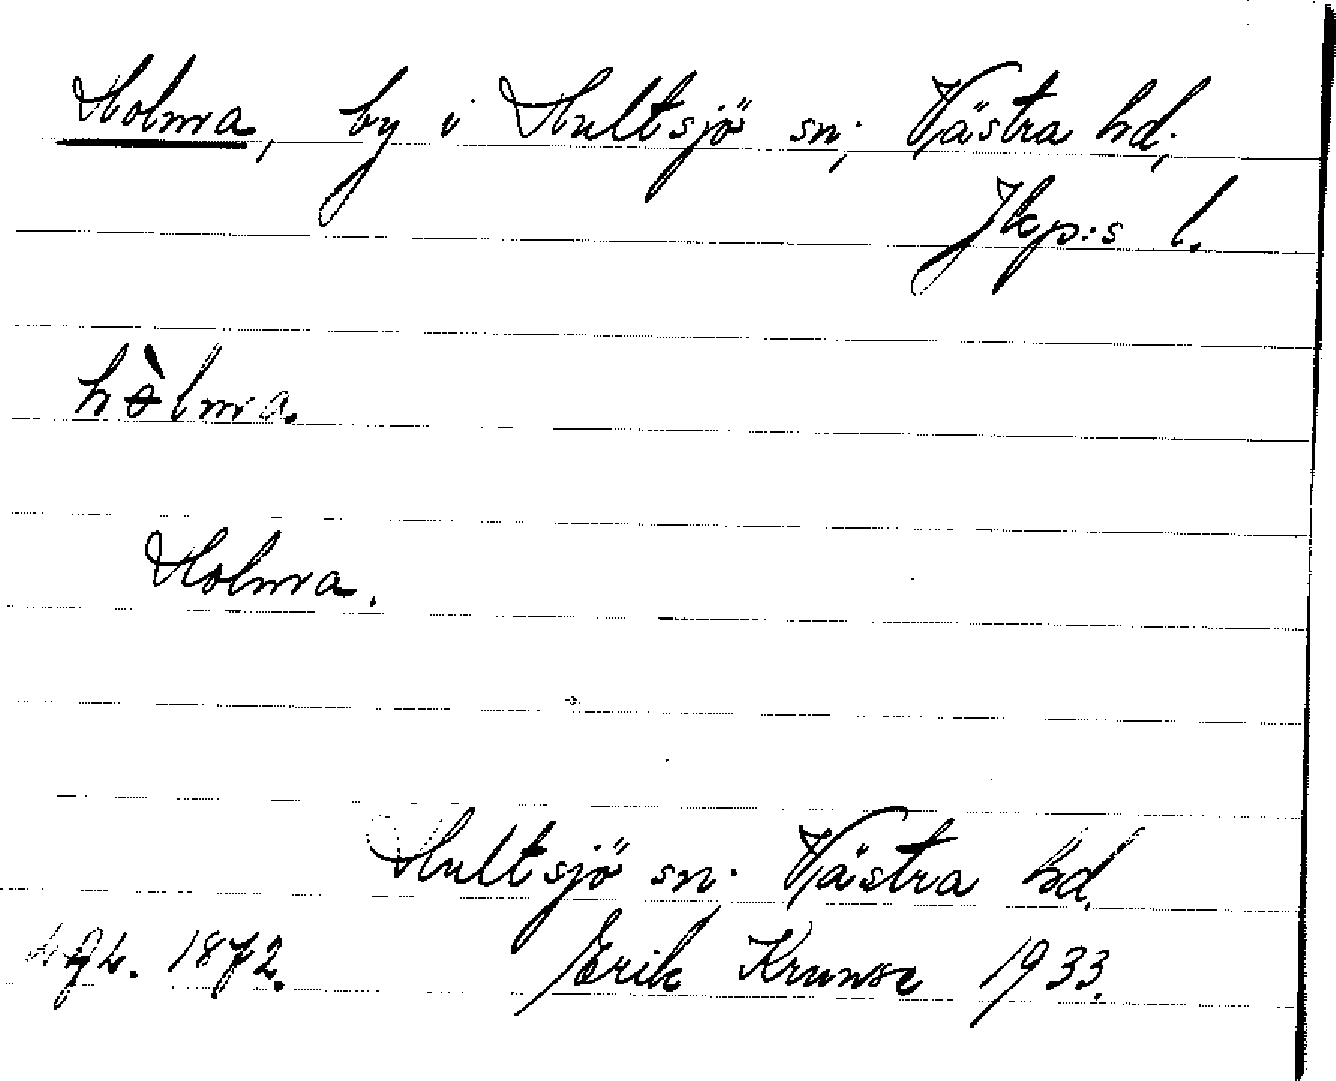 Holma, by i Hultsjö sn; Västra hd,
Jkp:s l.
hòlma.
Holma.
Hultsjö sn. Västra hd.
1872. Erik 1933.